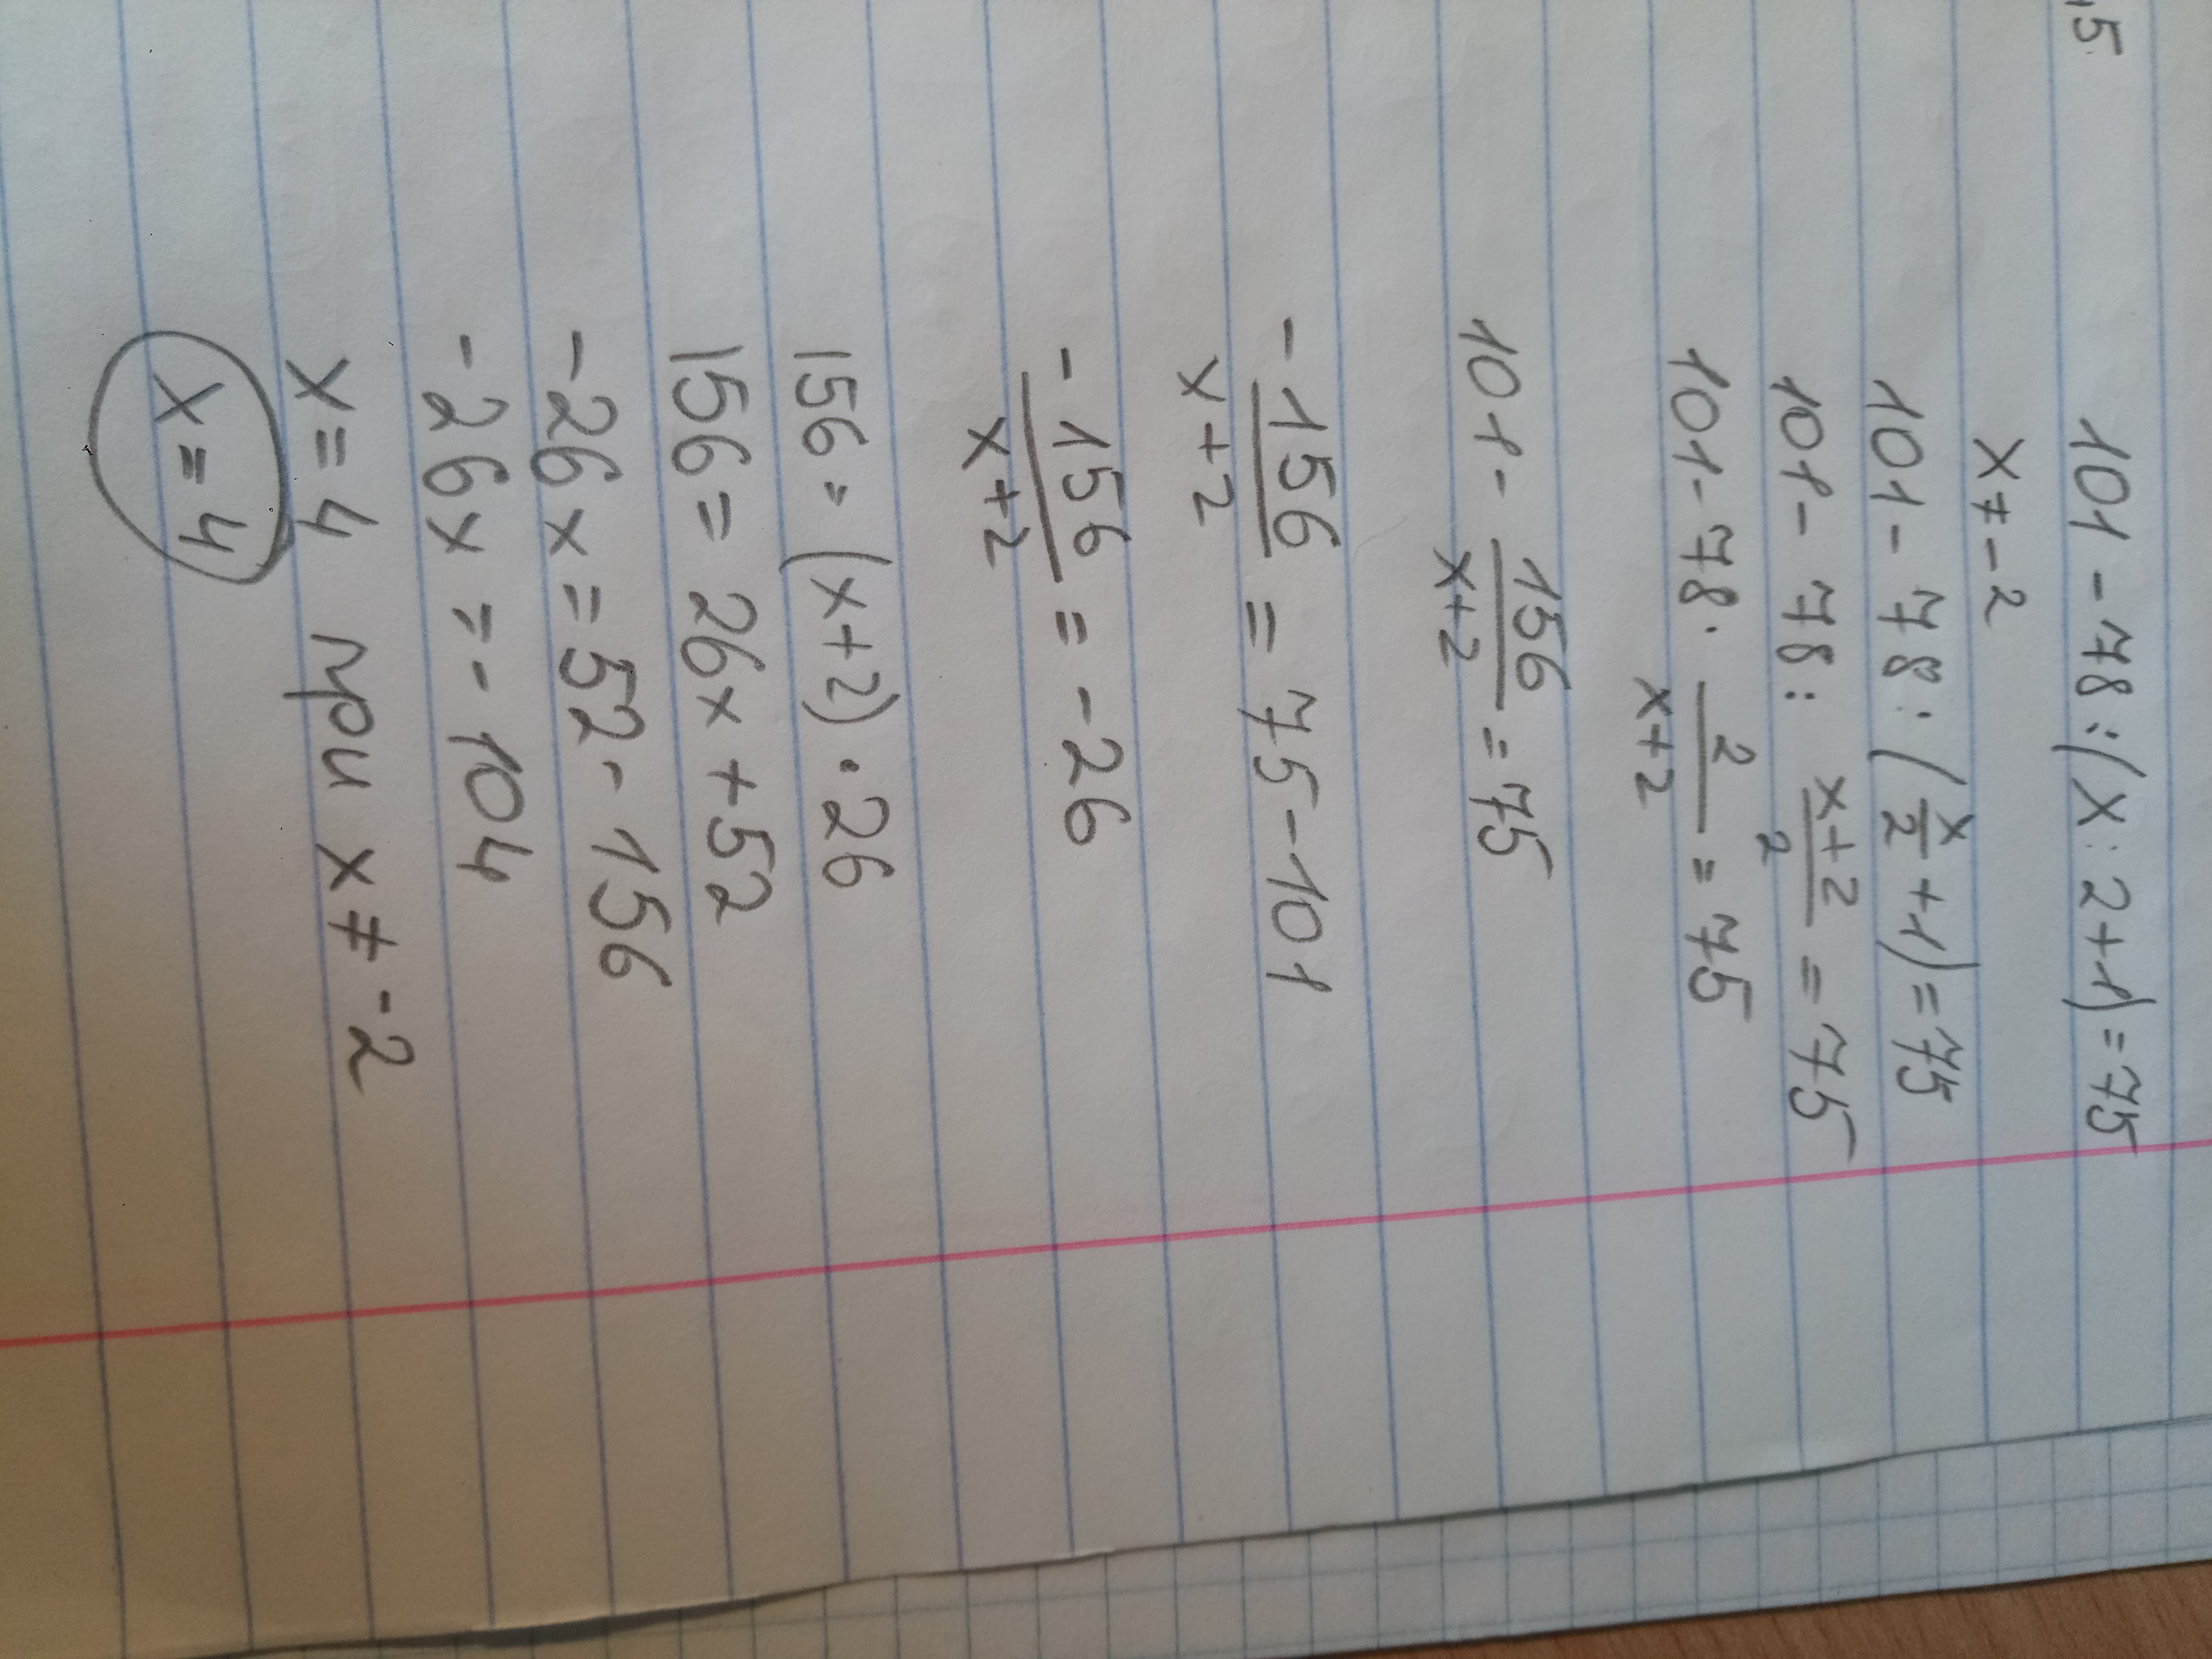 ,5
101 - 78 : (x : 2 + 1) = 75
x ≠ -2
101 - 78 : (x/2 + 1) = 75
101 - 78 : x+2/2 = 75
101 - 78 · 2/x+2 = 75
101 - 156/x+2 = 75
- 156/x+2 = 75 - 101
- 156/x+2 = -26
156 = (x+2) · 26
156 = 26x + 52
-26x = 52 - 156
-26x = -104
x = 4 при x ≠ -2
x = 4